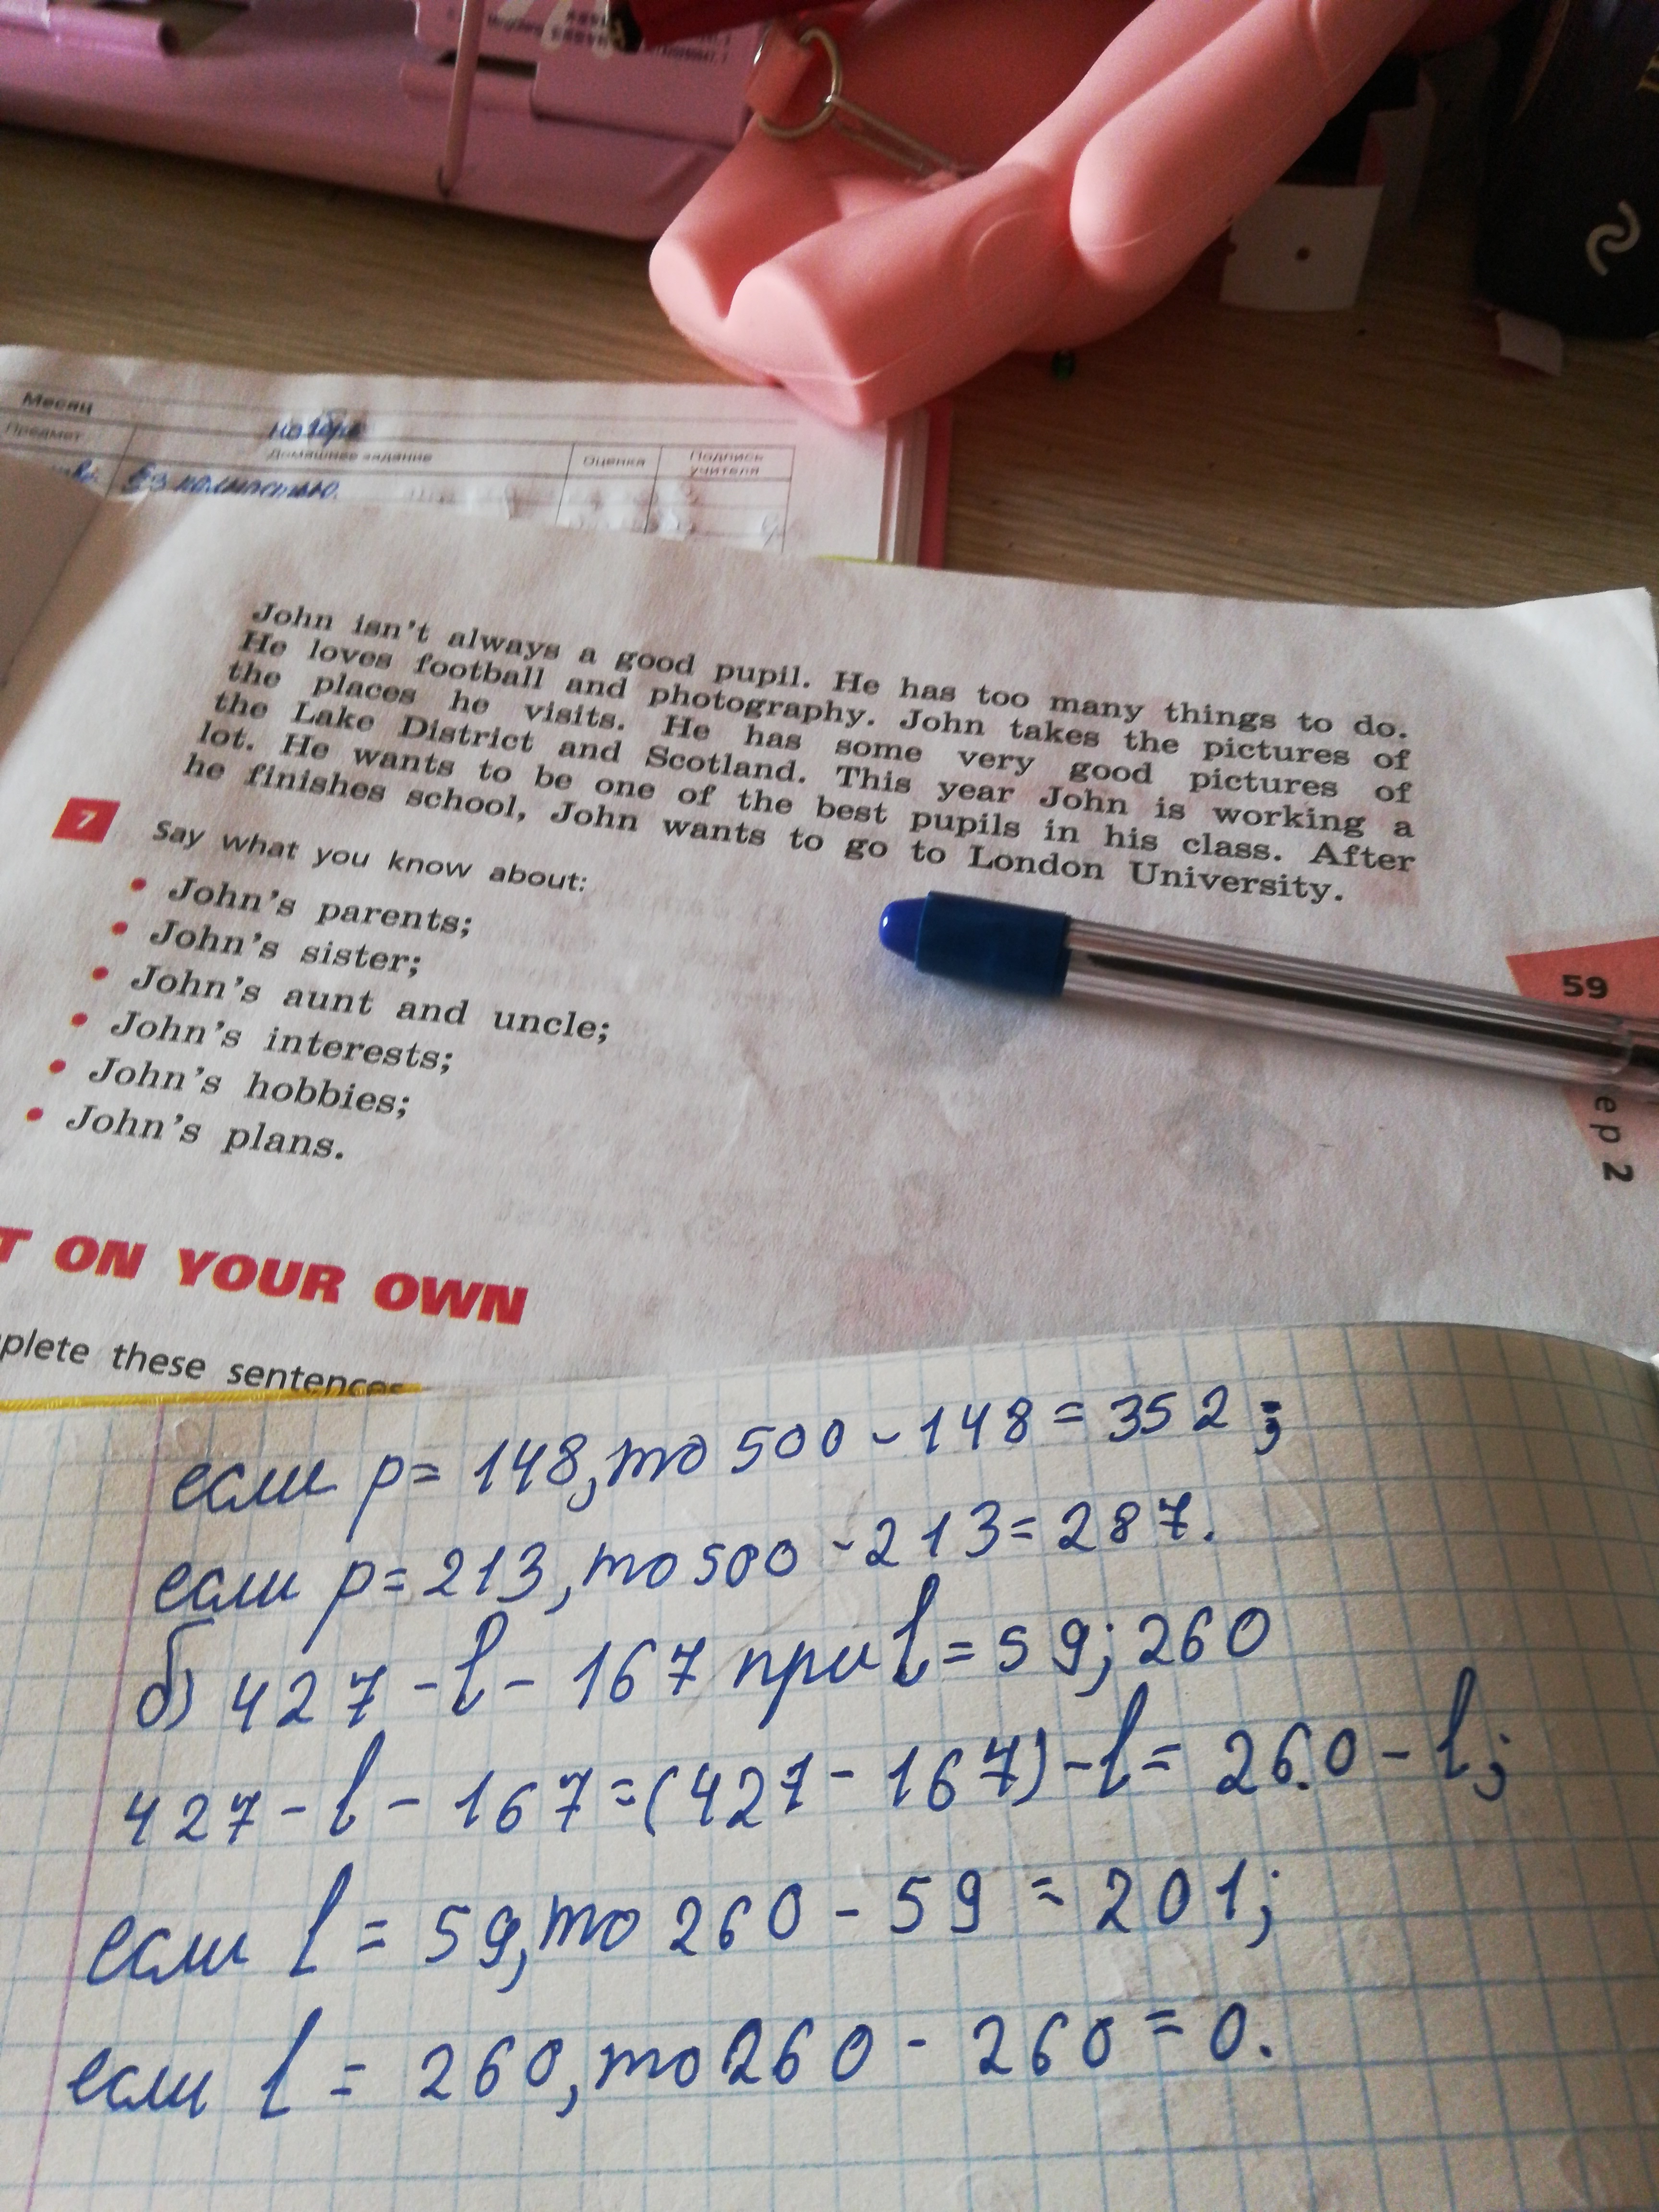 Месяц
Предмет
Домашнее задание
Оценка
Подпись учителя
John isn't always a good pupil. He has too many things to do.
He loves football and photography. John takes the pictures of
the places he visits. He has some very good pictures of
the Lake District and Scotland. This year John is working a
lot. He wants to be one of the best pupils in his class. After
he finishes school, John wants to go to London University.
7 Say what you know about:
• John's parents;
• John's sister;
• John's aunt and uncle;
• John's interests;
• John's hobbies;
• John's plans.
59
ep 2
T ON YOUR OWN
plete these sentences
если p = 148, то 500 - 148 = 352;
если p = 213, то 500 - 213 = 287.
б) 427 - l - 167 при l = 59; 260
427 - l - 167 = (427 - 167) - l = 260 - l;
если l = 59, то 260 - 59 = 201;
если l = 260, то 260 - 260 = 0.